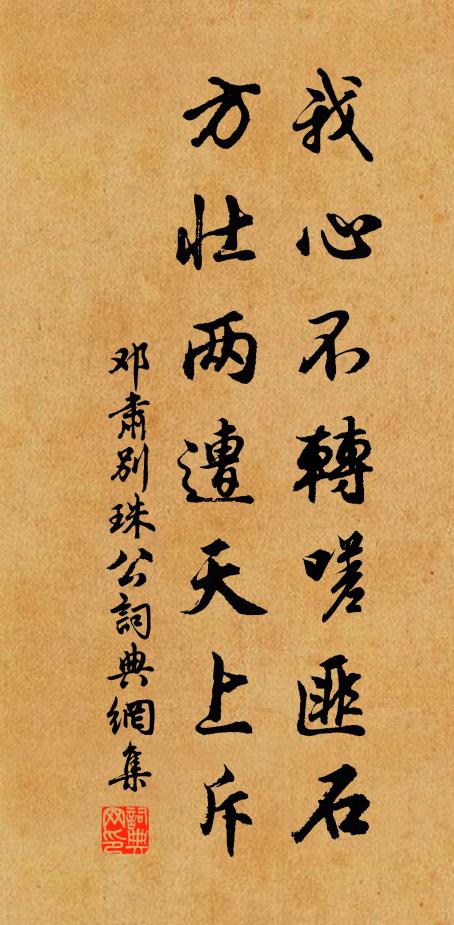 我心不轉嗟匪石
方壮两遭天上斥
邓肅别珠公詞典網集
詞典網印